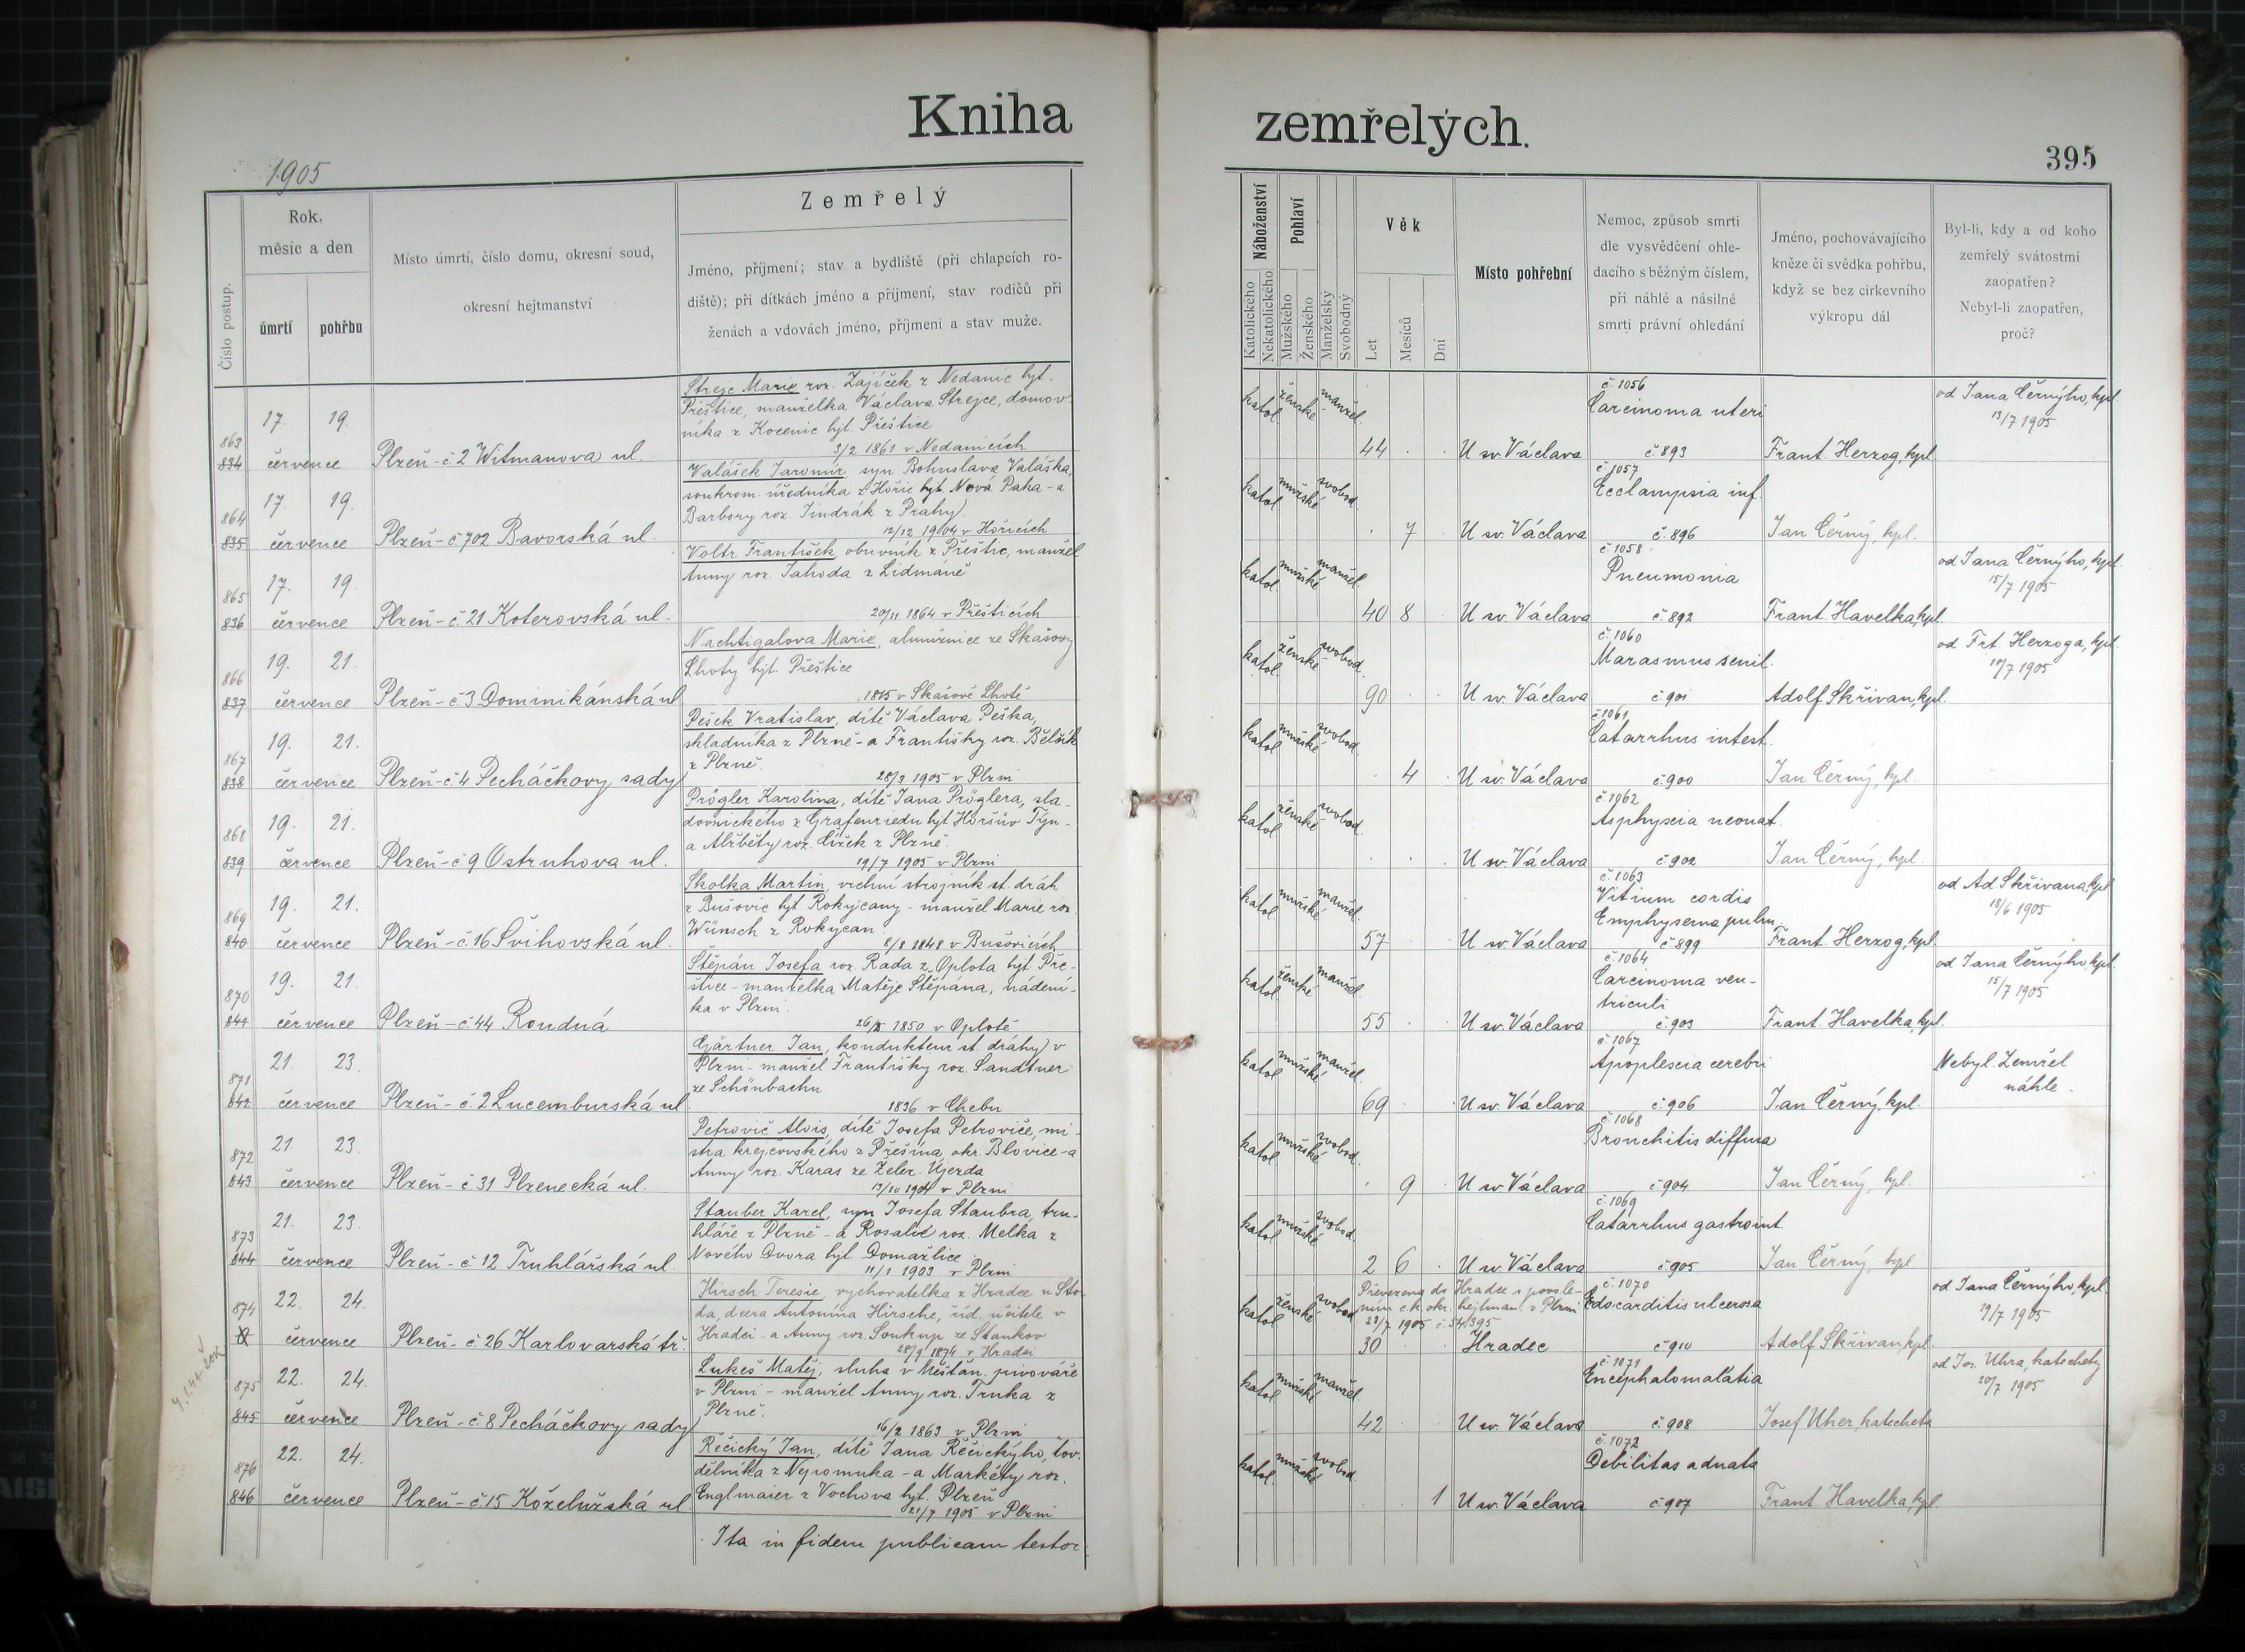 Kniha
zemřelých.
1905
395
Číslo postup.
Rok, měsíc a den
úmrtí
pohřbu
Místo úmrtí, číslo domu, okresní soud,
okresní hejtmanství
Zemřelý
Jméno, příjmení; stav a bydliště (při chlapcích ro-
diště); při dítkách jméno a příjmení, stav rodičů při
ženách a vdovách jméno, příjmení a stav muže.
Náboženství
Katolického
Nekatolického
Pohlaví
Mužského
Ženského
Manželský
Svobodný
Věk
Let
Mesíců
Dní
Místo pohřební
Nemoc, způsob smrti
dle vysvědčení ohle-
dacího s běžným číslem,
při náhlé a násilné
smrti právní ohledání
Jméno, pochovávajícího
kněze či svědka pohřbu,
když se bez církevního
výkropu dál
Byl-li, kdy a od koho
zemřelý svátostmi
zaopatřen?
Nebyl-li zaopatřen,
proč?
863
834
17. 19.
července
Plzeň - č 2 Witmanova ul.
Strejc Marie roz. Zajíček z Nedanic byt.
Přeštice, manželka Václava Strejce, domov-
níka z Kocenic byt. Přeštice
3/2 1861 v Nedanicích
katol ženské manžel.
44
U sv. Václava
č. 1056
Carcinoma uteri
č 893
Frant. Herzog, kpl.
od Jana Černýho, kpl.
13/7 1905
864
835
17. 19.
července
Plzeň - č 702 Bavorská ul.
Valášek Jaromír, syn Bohuslava Valáška,
soukrom. úředníka z Hořic byt. Nová Paka - a
Barbory roz. Jindrák z Prahy.
12/12 1904 v Hořicích
katol mužské svobod.
7
U sv. Václava
č 1057
Ecclampsia inf.
č. 896
Jan Černý, kpl.
865
836
17. 19.
července
Plzeň - č. 21 Koterovská ul.
Voltr František obuvník z Přeštic, manžel
Anny roz. Jahoda z Lidmáně
20/11 1864 v Přešticích
katol mužské manžel.
40 8
U sv. Václava
č 1058
Pneumonia
č. 892
Frant. Havelka, kpl.
od Jana Černýho, kpl.
15/7 1905
866
837
19. 21.
července
Plzeň - č 3 Dominikánská ul
Nachtigalova Marie, almužnice ze Skašovy
Lhoty byt. Přeštice
1815 v Skašově Lhotě
katol ženské svobod.
90
U sv. Václava
č. 1060
Marasmus senil.
č. 901
Adolf Skřivan, kpl.
od Frt. Herzoga, kpl.
10/7 1905
867
838
19. 21.
července
Plzeň - č 4 Pecháčkovy sady
Pešek Vratislav, dítě Václava Peška,
skladníka z Plzně - a Františky roz. Bělšík
z Plzně.
28/3 1905 v Plzni
katol mužské svobod
4
U sv. Václava
č 1061
Catarrhus intest.
č 900
Jan Černý, kpl.
868
839
19. 21.
července
Plzeň - č 9 Ostruhova ul.
Prögler Karolina, dítě Jana Pröglera, sla-
dovnického z Grafenriedu byt Horšův Týn -
a Alžběty roz. Čížek z Plzně.
19/7 1905 v Plzni
katol ženské svobod.
U sv. Václava
č. 1062
Asphyxia neonat.
č 902
Jan Černý, kpl.
869
840
19. 21.
července
Plzeň - č. 16 Švihovská ul.
Skolka Martin, vrchní strojník st. dráh
z Bušovic byt Rokycany - manžel Marie roz.
Wünsch z Rokycan.
8/8 1848 v Bušovicích
katol mužské manžel.
57
U sv Václava
č. 1063
Vitium cordis
Emphysema pulm.
č 899
Frant. Herzog, kpl.
od Ad. Skřivana, kpl
18/6 1905
870
841
19. 21.
července
Plzeň - č 44 Roudná
Štěpán Josefa roz. Rada z Oplota byt Pře-
štice - manželka Matěje Štěpána, nádení-
ka v Plzni.
1850 v Oplotě
katol ženské manžel.
55
U sv. Václava
č. 1064
Carcinoma ven-
triculi
č. 903
Frant. Havelka, kpl.
od Jana Černýho, kpl.
15/7 1905
871
842
21. 23.
července
Plzeň - č. 2 Lucemburská ul
Gärtner Jan, kondukteur st. dráhy v
Plzni - manžel Františky roz. Sandtner
ze Schönbachu
1836 v Chebu
katol mužské manžel.
69
U sv. Václava
č. 1067
Apoplexia cerebri
č. 906
Jan Černý, kpl.
Nebyl. Zemřel
náhle.
872
843
21. 23.
července
Plzeň - č 31 Plzenecká ul.
Petrovič Alois, dítě Josefa Petroviče, mi-
stra krejčovského z Přešína, okr. Blovice - a
Anny roz. Karas ze Želez. Újezda
13/10 1904 v Plzni
katol mužské svobod.
9
U sv Václava
č. 1068
Bronchitis diffusa
č 904
Jan Černý, kpl.
873
844
21. 23.
července
Plzeň - č 12 Truhlářská ul.
Stauber Karel, syn Josefa Staubra, tru-
hláře z Plzně - a Rosalie roz. Melka z
Nového Dvora byt Domažlice
11/1 1903 v Plzni
katol mužské svobod.
2 6
U sv. Václava
č. 1069
Catarrhus gastroint.
č 905
Jan Černý, kpl
874
22. 24.
července
Plzeň - č. 26 Karlovarská tř.
Hirsch Teresie, vychovatelka z Hradce u Sto-
da, dcera Antonína Hirsche, říd. učitele v
Hradci - a Anny roz. Soukup ze Stankov
28/9 1874 v Hradci
katol ženské svobod
Převezena do Hradce s povole-
ním c.k. okr. hejtman. v Plzni
23/7 1905 č. 34395
30
Hradec
č. 1070
Edocarditis ulcerosa
č 910
Adolf Skřivan, kpl.
od Jana Černýho, kpl.
19/7 1905
875
845
22. 24.
července
Plzeň - č 8 Pecháčkovy sady
Lukeš Matěj, sluha v Měšťan. pivováře
v Plzni - manžel Anny roz. Trnka z
Plzně.
16/2 1863 v Plzni
katol mužské manžel
42
U sv. Václava
č 1071
Encephalomalatia
č. 908
Josef Uher, katecheta
od Jos. Uhra, katechety
20/7 1905
876
846
22. 24.
července
Plzeň - č 15 Koželužská ul
Řečický Jan, dítě Jana Řečickýho, tov.
dělníka z Nepomuka - a Markéty roz.
Englmaier z Vochova byt. Plzeň
21/7 1905 v Plzni
katol. mužské svobod
1
U sv. Václava
č. 1072
Debilitas adnata
č. 907
Frant. Havelka, kpl.
Ita in fidem publicam testor